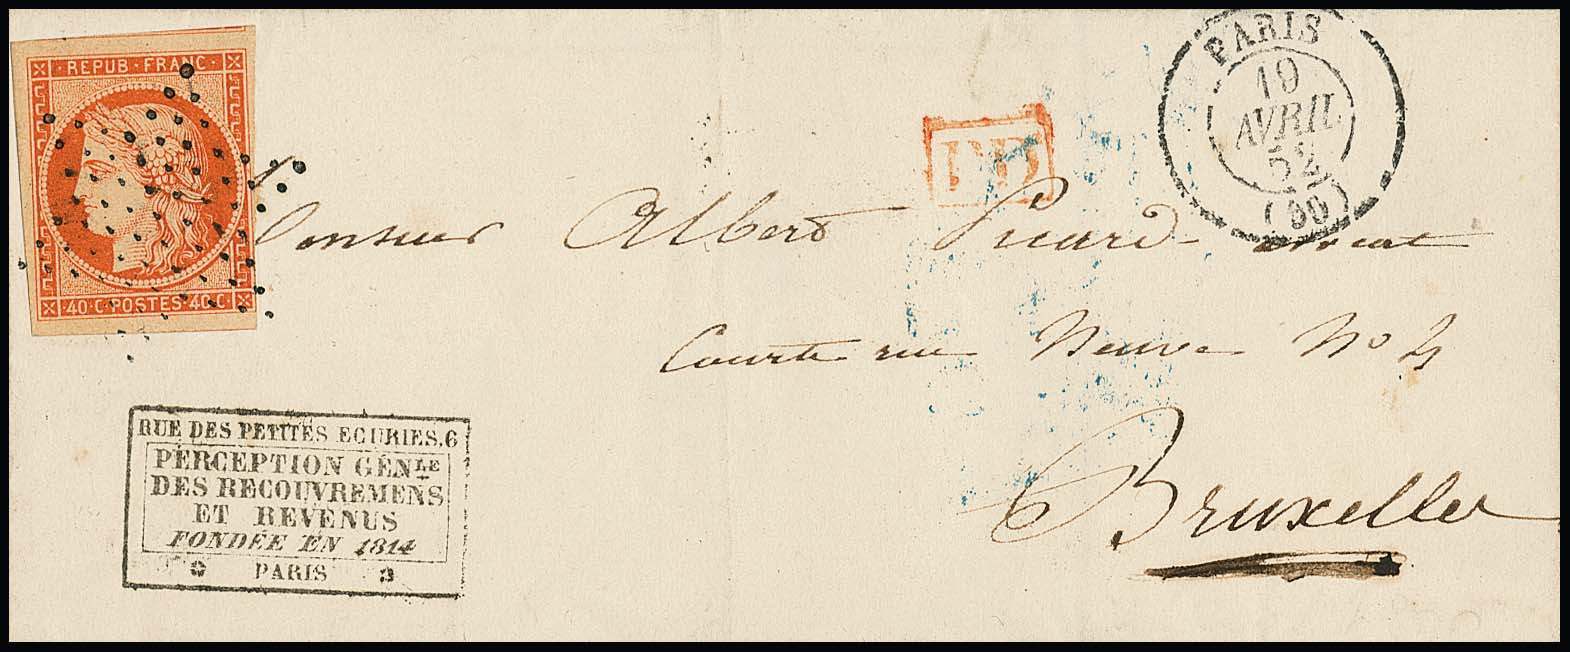 REPUB · FRANC ·
· 40 · C · POSTES · 40 C ·
PARIS
19
AVRIL
52
(60)
PD
Monsieur Albert Picard avocat
Courte rue Neuve No 4
Bruxelles
RUE DES PETITES ECURIES.6
PERCEPTION GÉNLE
DES RECOUVREMENS
ET REVENUS
FONDÉE EN 1814
PARIS